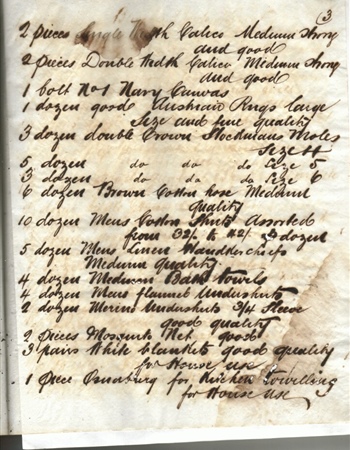 (3
2 pieces Single Width Calico Medium Strong
and good
2 pieces Double Width Calico Medium Strong
and good
1 bolt No 1 Navy Canvas
1 dozen good Rugs large
Size and fine quality
3 dozen double Crown
Size 4
5 dozen do do do Size 5
3 dozen do do do Size 6
6 dozen Brown Cotton hose Medium
quality
10 dozen Mens Cotton Shirts Assorted
from 32/ to 42/ dozen
5 dozen Mens Linen Handkerchiefs
Medium quality
4 dozen Medium Bath towels
4 dozen Mens flannel Undershirts
2 dozen Merino Undershirts 3/4 Sleeve
good quality
2 pieces Mosquito Net good
3 pairs White blankets good quality
for House use
1 piece Osnaburg for Kitchen Towelling
for House Use